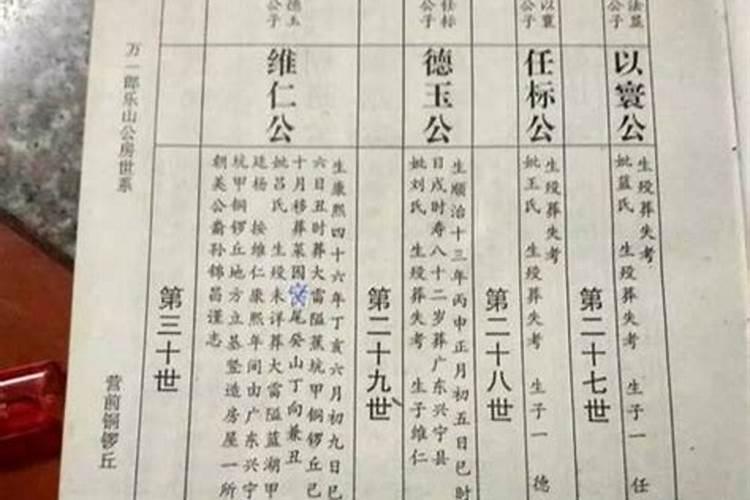 法显
公子
以寰公
生殁葬失考
妣蓝氏 生殁葬失考 生子一 任
第二十七世
以寰
公子
任标公
生殁葬失考
妣王氏 生殁葬失考 生子一 德
第二十八世
任标
公子
德玉公
生顺治十三年丙申正月初五日巳时
日戌时寿八十二岁葬广东兴宁县
妣刘氏 生殁葬失考 生子维仁
第二十九世
德玉
公子
维仁公
生康熙四十六年丁亥六月初九日巳
六日丑时葬大雷隘蕉坑甲铜锣丘己
十月移葬菜园窝尾癸山丁向兼丑
妣吕氏 生殁未详葬大雷隘蓝湖甲
廷杨 按维仁康熙年间由广东兴宁
坑甲铜锣丘地方立基竖造房屋一所
朝美公裔孙锦昌谨志
第三十世
万一郎乐山公房世系
营前铜锣丘